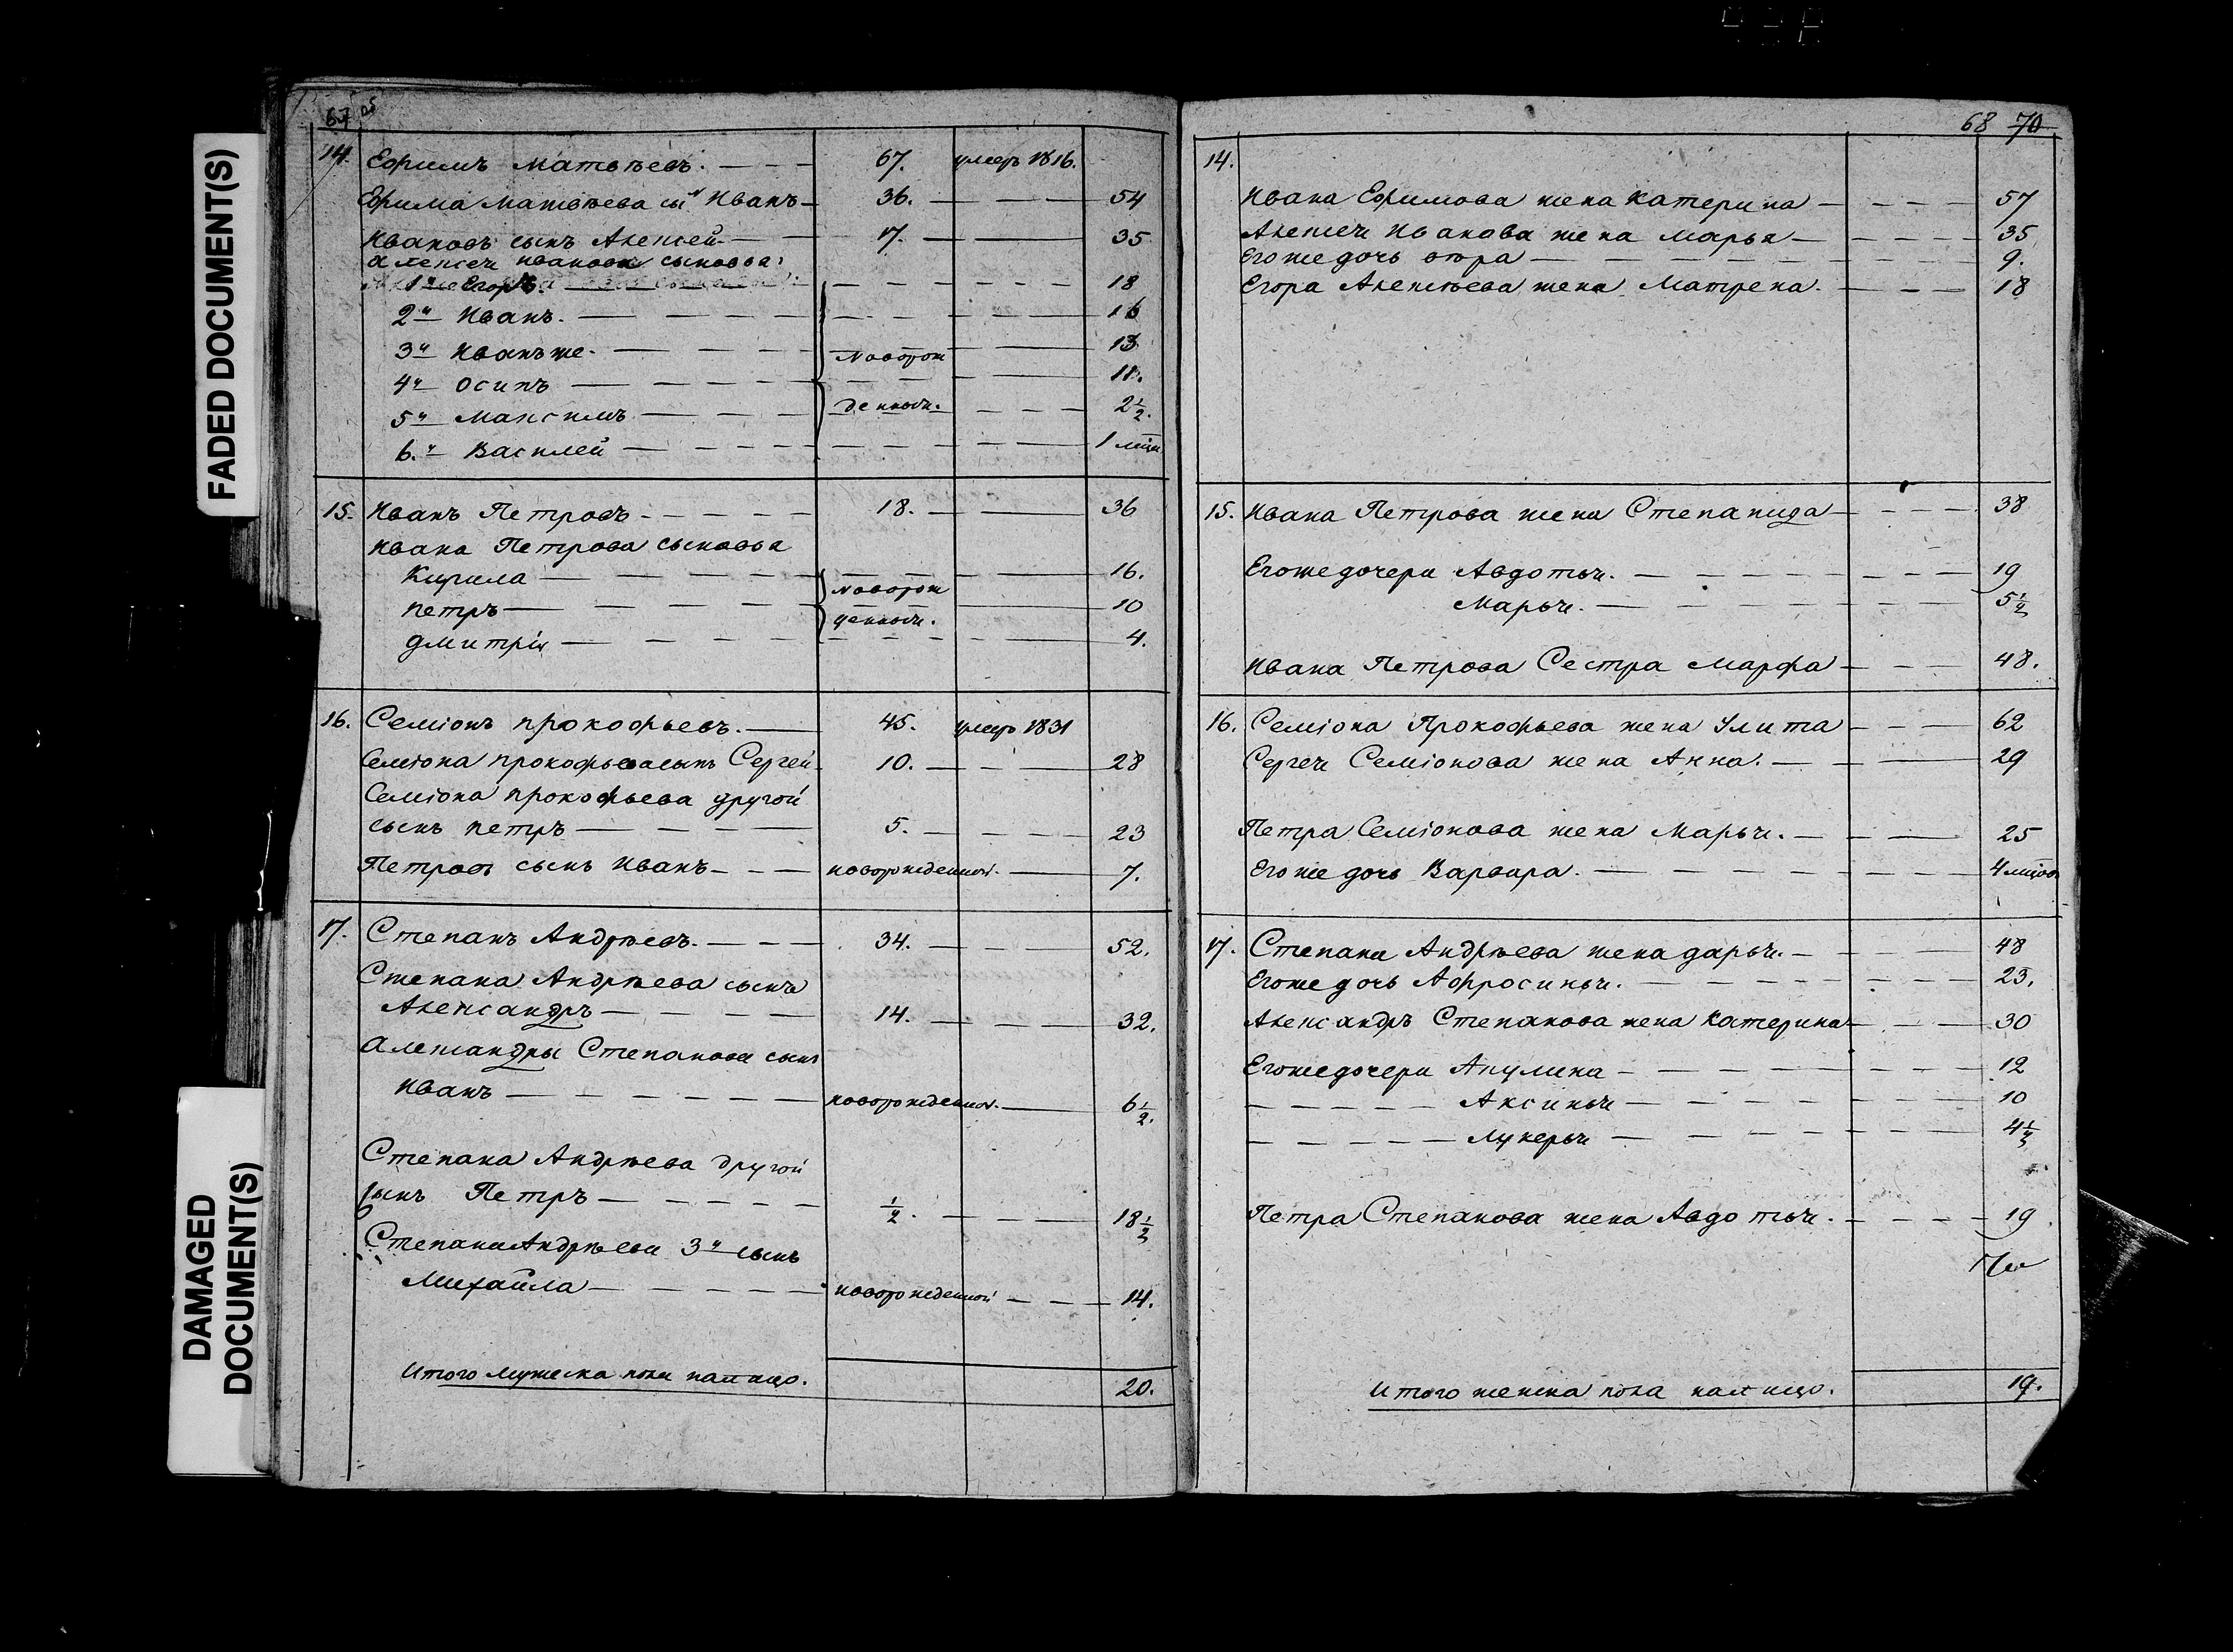 FADED DOCUMENT(S)
DAMAGED DOCUMENT(S)
67
14. Ефимъ Матвѣевъ. 67. умеръ 1816.
Ефима Матвѣева сы Иванъ 36. 54
Ивановъ сынъ Алексей 17. 35
Алексея Иванова сыновья:
1й Егоръ. 18
2й Иванъ. 16
3й Иванъ же. новорож 13
4й Осипъ 11.
5й Максимъ денныя. 2½.
6й Василей 1 мца
15. Иванъ Петровъ 18. 36
Ивана Петрова сыновья
Кирила 16.
новорож
Петръ 10
денныя.
Дмитрiй 4.
16. Семiонъ Прокофьевъ. 45. умеръ 1831
Семiона Прокофьева сынъ Сергей 10. 28
Семiона Прокофьева другой
сынъ Петръ 5. 23
Петровъ сынъ Иванъ новорожденной. 7.
17. Степанъ Андрѣевъ. 34. 52.
Степана Андрѣева сынъ
Александръ 14. 32.
Александры Степанова сынъ
Иванъ новорожденной. 6½.
Степана Андрѣева другой
сынъ Петръ ½. 18½
Степана Андрѣева 3й сынъ
Михайла новорожденной 14.
Итого мужеска пола налицо. 20.
68 70
14.
Ивана Ефимова жена Катерина 57
Алексея Иванова жена Марья 35
Его же дочь 9.
Егора Алексѣева жена Матрена. 18
15. Ивана Петрова жена Степанида 38
Его же дочери Авдотья. 19
Марья. 5½
Ивана Петрова Сестра Марфа 48.
16. Семiона Прокофьева жена Улита 62
Сергея Семiонова жена Анна. 29
Петра Семiонова жена Марья. 25
Его же дочь Варвара. 4 мцов
17. Степана Андрѣева жена Дарья. 48
Его же дочь Афросинья. 23.
Александръ Степанова жена Катерина 30
Его же дочери Акулина 12
Аксинья 10
Лукерья 4½
Петра Степанова жена Авдотья. 19.
Итого женска пола налицо. 19.